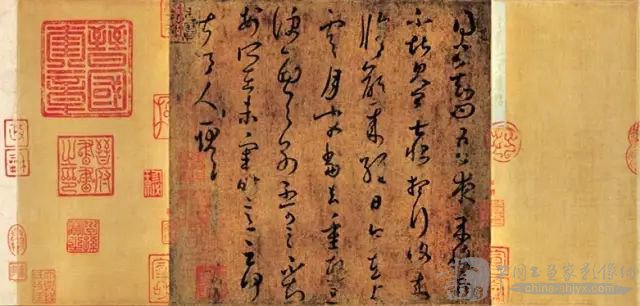 得書知問吾夜來腹痛
不堪見卿甚恨想行復來
脩齡來經日今在上
虞月末當去重熙旦
便西與別不可言不知
安所在未審時意云何甚
令人耿耿
晉國奎章
晉府書畫之印
china-shjyx.com